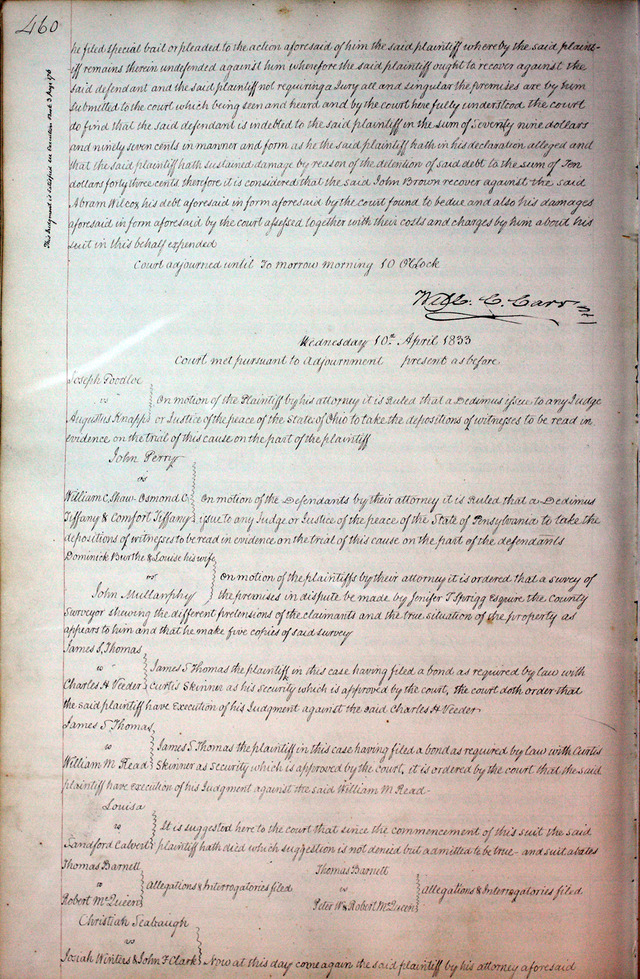 460
he filed special bail or pleaded to the action aforesaid of him the said plaintiff whereby the said plaint-
iff remains therein undefended against him wherefore the said plaintiff ought to recover against the
said defendant and the said plaintiff not requiring a Jury all and singular the premises are by him
submitted to the court which being seen and heard and by the court here fully understood. the court
do find that the said defendant is indebted to the said plaintiff in the sum of Seventy nine dollars
and ninety seven cents in manner and form as he the said plaintiff hath in his declaration alleged and
that the said plaintiff hath sustained damage by reason of the detention of said debt to the sum of Ten
dollars forty three cents therefore it is considered that the said John Brown recover against the said
Abram Wilcox his debt aforesaid in form aforesaid by the court found to be due and also his damages
aforesaid in form aforesaid by the court assessed together with their costs and charges by him about his
suit in this behalf expended
Court adjourned until To morrow morning 10 OClock
This Judgment is satisfied see Execution Book 3 Page
Will. C. Carr
Wednesday 10th April 1833
Court met pursuant to Adjournment present as before.
Joseph Foodloe
vs
Augustus Knapp
On motion of the Plaintiff by his attorney it is Ruled that a Dedimus issue to any Judge
or Justice of the peace of the State of Ohio to take the depositions of witnesses to be read in
evidence on the trial of this cause on the part of the plaintiff
John Perry
vs
William C. Shaw Osmond C.
Tiffany & Comfort Tiffany
On motion of the Defendants by their attorney it is Ruled that a Dedimus
issue to any Judge or Justice of the peace of the State of Pensylvania to take the
depositions of witnesses to be read in evidence on the trial of this cause on the part of the defendants
Dominick Burthe & Louise his wife
vs.
John Mullanphy
On motion of the plaintiffs by their attorney it is ordered that a survey of
the premises in dispute be made by Jenifer T Sprigg Esquire the County
Surveyor shewing the different pretensions of the claimants and the true situation of the property as
appears to him and that he make five copies of said survey
James S. Thomas
vs
Charles H Veeder
James S Thomas the plaintiff in this case having filed a bond as required by law with
Curtis Skinner as his Security which is approved by the court, the court doth order that
the said plaintiff have Execution of his Judgment against the said Charles H Veeder
James S Thomas
vs
William M Read
James S Thomas the plaintiff in this case having filed a bond as required by law with Curtis
Skinner as Security which is approved by the court, it is ordered by the court that the said
plaintiff have execution of his Judgment against the said William M Read
Louisa
vs
Sandford Calvert
It is suggested here to the court that since the commencement of this suit the said
plaintiff hath died which suggestion is not denied but admitted to be true - and suit abates
Thomas Barnett
vs
Robert McQueen
allegations & Interrogatories filed
Thomas Barnett
vs
Peter W & Robert McQueen
allegations & Interrogatories filed
Christian Seabaugh
vs
Josiah Winters & John F Clark
Now at this day come again the said plaintiff by his attorney aforesaid